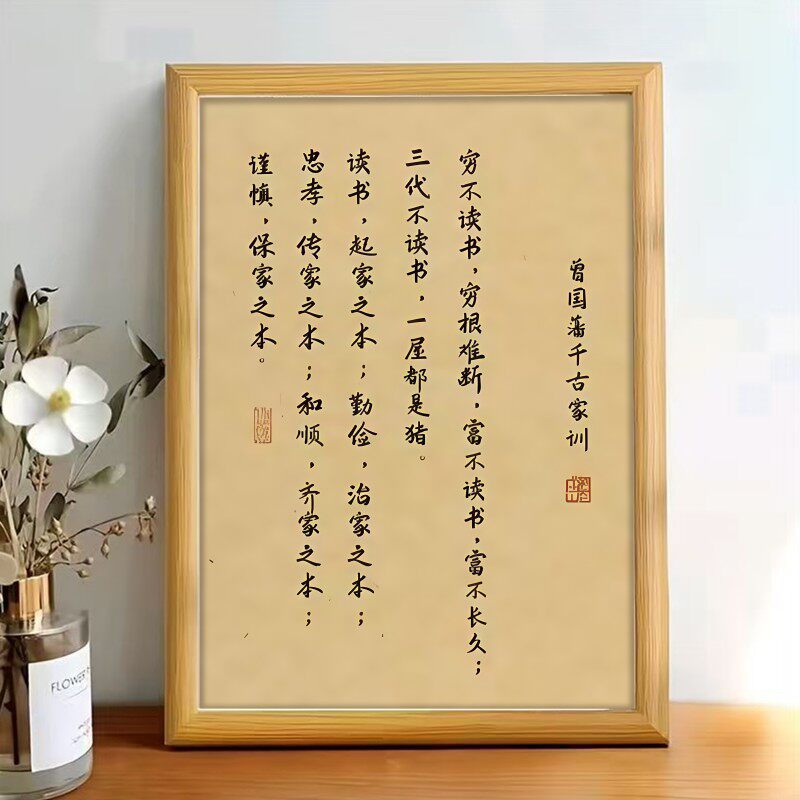 曾国藩千古家训
穷不读书，穷根难断，富不读书，富不长久；
三代不读书，一屋都是猪。
读书，起家之本；勤俭，治家之本；
忠孝，传家之本；和顺，齐家之本；
谨慎，保家之本。
FLOWER